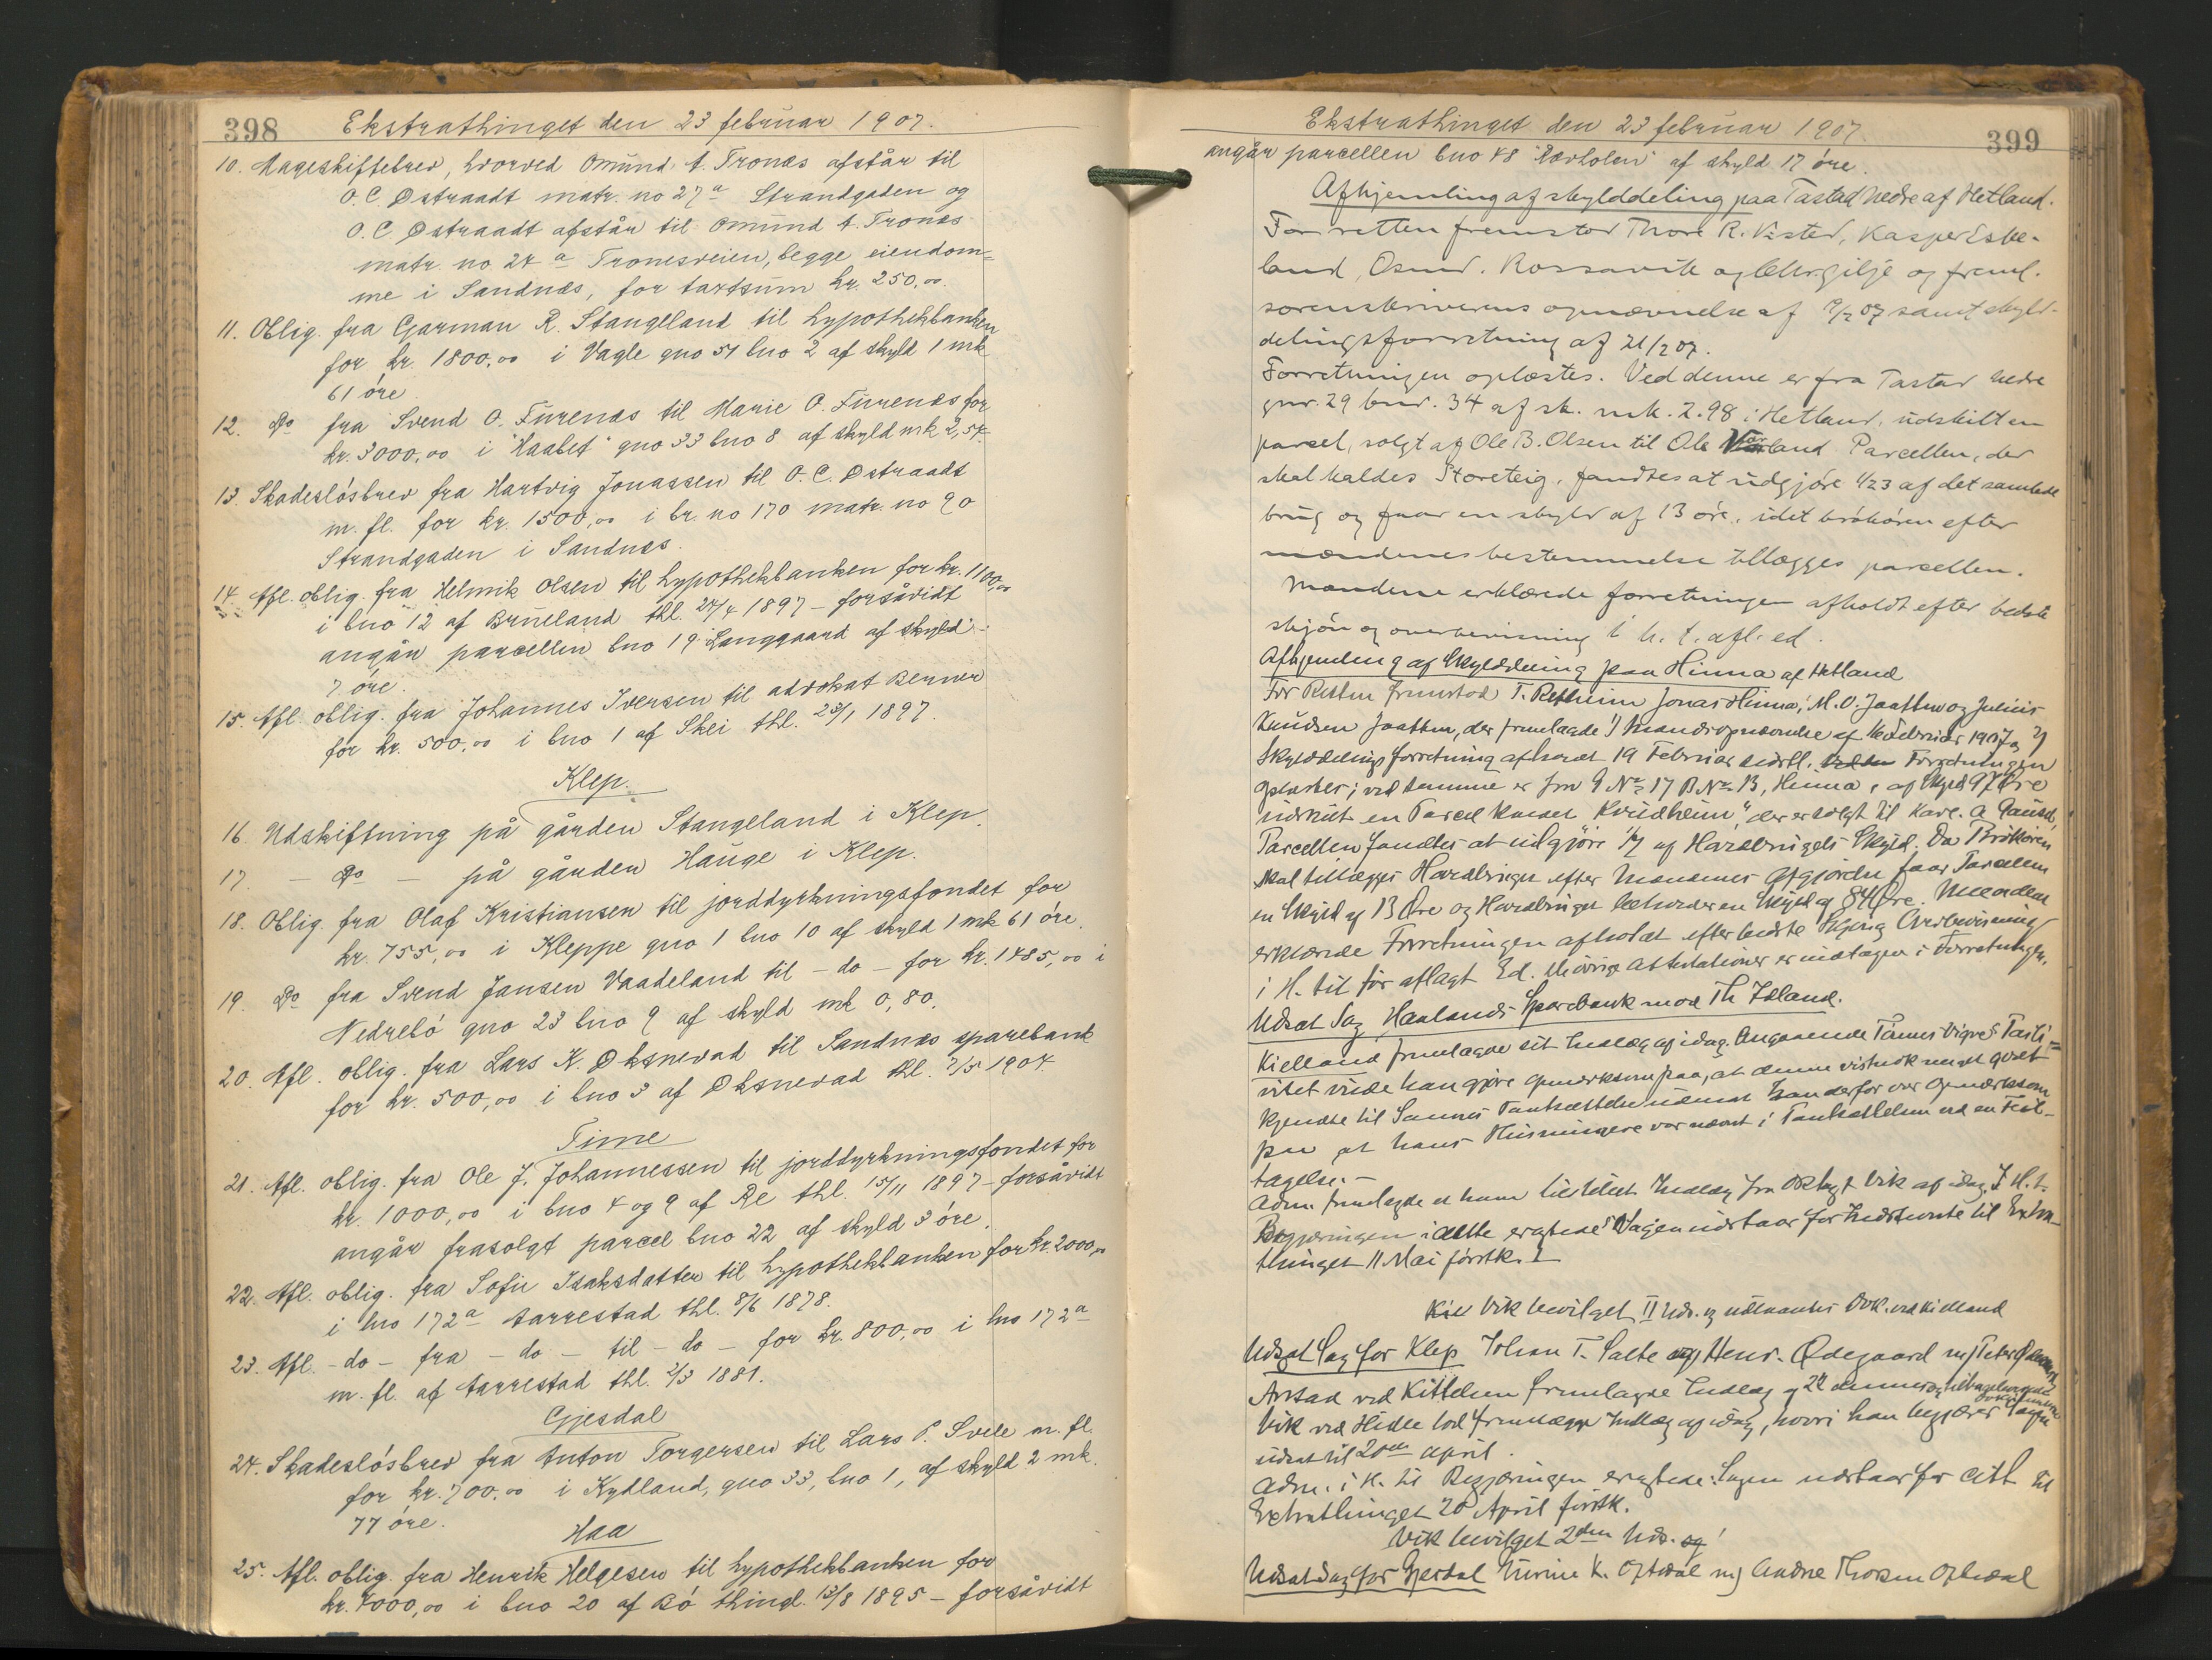 398
Ekstrathinget den 23 februar 1907.
10. Mageskiftebrev, hvorved Omund A. Tronæs afstår til
O. C. Østraadt matr. no 27 a Strandgaden og
O. C Østraadt afstår til Omund A. Tronæs
matr. no 24 a Tronesveien, begge eiendom-
me i Sandnæs, for taxtsum kr. 250,00.
11. Oblig. fra Gjarman R. Stangeland til hypothekbanken
for kr. 1800,00 i Vagle gno 51 bno 2 af skyld 1 mk
61 öre
12. Do fra Svend O. Furenæs til Marie O. Furenæs for
kr. 3000,00 i "Haabet" gno 33 bno 8 af skyld mk 2,54
13 Skadeslösbrev fra Hartvig Jonassen til O. C. Østraadt
m. fl. for kr. 1500,00 i br. no 170 matr. no 90
Strandgaden i Sandnæs.
14. Afl. oblig. fra Helmik Olsen til hypothekbanken for kr. 1100,00
i bno 12 af Brueland thl. 24/4 1897 – forsåvidt
angår parcellen bno 19 Langgaard af skyld
7 öre.
15. Afl. oblig. fra Johannes Iversen til advokat Berner
for kr. 500,00 i bno 1 af Skei thl. 23/1 1897.
Klep.
16 Udskiftning på gården Stangeland i Klep.
17. – Do – på gården Hauge i Klep.
18. Oblig. fra Olaf Kristiansen til jorddyrkningsfondet for
kr. 755,00 i Kleppe gno 1 bno 10 af skyld 1 mk 61 öre.
19. Do fra Svend Jansen Vaadeland til – do – for kr. 1485,00 i
Nedrebö gno 23 bno 9 af skyld mk 0,80.
20. Afl. oblig. fra Lars K. Øksnevad til Sandnæs sparebank
for kr. 500,00 i bno 3 af Øksnevad thl. 7/5 1904.
Time
21. Afl. oblig. fra Ole J. Johannessen til jorddyrkningsfondet for
kr. 1000,00 i bno 4 og 9 af Re thl. 15/11 1897 – forsåvidt
angår frasolgt parcel bno 22 af skyld 3 öre.
22. Afl. oblig. fra Sofie Isaksdatter til hypothekbanken for kr. 2000,00
i lno 172 a Aarrestad thl. 8/6 1878.
23. Afl. – do – fra – do – til – do – for kr. 800,00 i lno 172 a
m. fl. af Aarrestad thl. 2/3 1881.
Gjesdal
24. Skadeslösbrev fra Anton Torgersen til Lars P. Svele m. fl.
for kr. 700,00 i Kydland, gno 33, bno 1, af skyld 2 mk.
77 öre.
Haa
25. Afl. oblig. fra Henrik Helgesen til hypothekbanken for
kr. 4000,00 i bno 20 af Bö thingl. 13/8 1895 – forsåvidt
Ekstrathinget den 23 februar 1907.
399
angår parcellen bno 48 af skyld 17 öre.
Afhjemling af skylddeling paa Tastad nedre af Hetland.
For retten fremstod Thore R. Visted, Kasper Eske-
land, Osmd. Rossavik og Chr. Gilje og freml.
sorenskriverens opnævnelse af 07 samt skyld-
delingsforretning af 21/2 07.
Forretningen oplæstes. Ved denne er fra Tastad nedre
gnr. 29 bnr. 34 af sk. mk. 2.98 i Hetland, udskilt en
parcel, solgt af Ole B. Olsen til Ole Varland Parcellen, der
skal kaldes Storeteig, fandtes at udgjöre 1/23 af det samlede
brug og faar en skyld af 13 öre, idet brökören efter
mændenes bestemmelse tillægges parcellen.
Mændene erklærede forretningen afholdt efter bedste
skjön og overbevisning i h. t. afl. ed.
Afhjemling af Skylddeling paa Hinna af Hetland
For Retten fremstod T. Retheim Jonas Hinna, M. O. Jaatten og Julius
Knudsen Jaatten, der fremlagde 1) Mandsopnævnelse af Februar 1907 og 2)
Skylddelingsforretning afholdt 19 Februar sidstl. Forretningen
oplæstes; ved samme er fra G No 17 B No 13, Hinna, af Skyld 97 Øre
udskilt en Parcel kaldet "Kvidheim", der er solgt til Karl A Gausel,
Parcellen fandtes at udgjöre 1/7 af Hovedbrugets Skyld. Da Brökören
skal tillægges Hovedbruget efter Mændenes Afgjörelse faar Parcellen
en Skyld af 13 Øre og Hovedbruget beholder en Skyld af 84 Øre. Mændene
erklærede Forretningen afholdt efter bedste Skjön og Overbevisning
i H. til för aflagt Ed. Övrige Attestationer er indtagen i Forretningen.
Udsat Sag Haalands Sparebank mod Th. Idland.
Kielland fremlagde sit Indlæg af idag. Angaaende Tönnes Vigres
vilde han gjöre opmærksom paa, at denne vistnok meget godt
kjendte til Sannes Pantsættelse
paa at hans Husmingere var nævnt i Pantsættelsen
tagelse.–
Adm. fremlagde et ham tilstillet Indlæg fra Oktay. Vik af idag. I H. t.
Begjæringen i dette eragtedes Sagen udstaar for Indstevnte til Extra-
thinget 11 Mai förstk. –
Vik bevilget II Uds. og Dok. ved Kielland
Udsat Sag for Klep Johan T. Salte Henr. Ødegaard m/ Peter
Anstad ved Kittelsen fremlagde Indlæg
Vik ved Hidle lod fremlægge Indlæg af idag, hvori han begjærer Sagen
udsat til 20de April.
Adm. i H. til Begjæringen eragtede: Sagen udstaar for Citt. til
Extrathinget 20 April förstk.
Vik bevilget 2den Uds. og
Udsat Sag for Gjesdal K. Oftedal m/ Andre Thorsen Oftedal